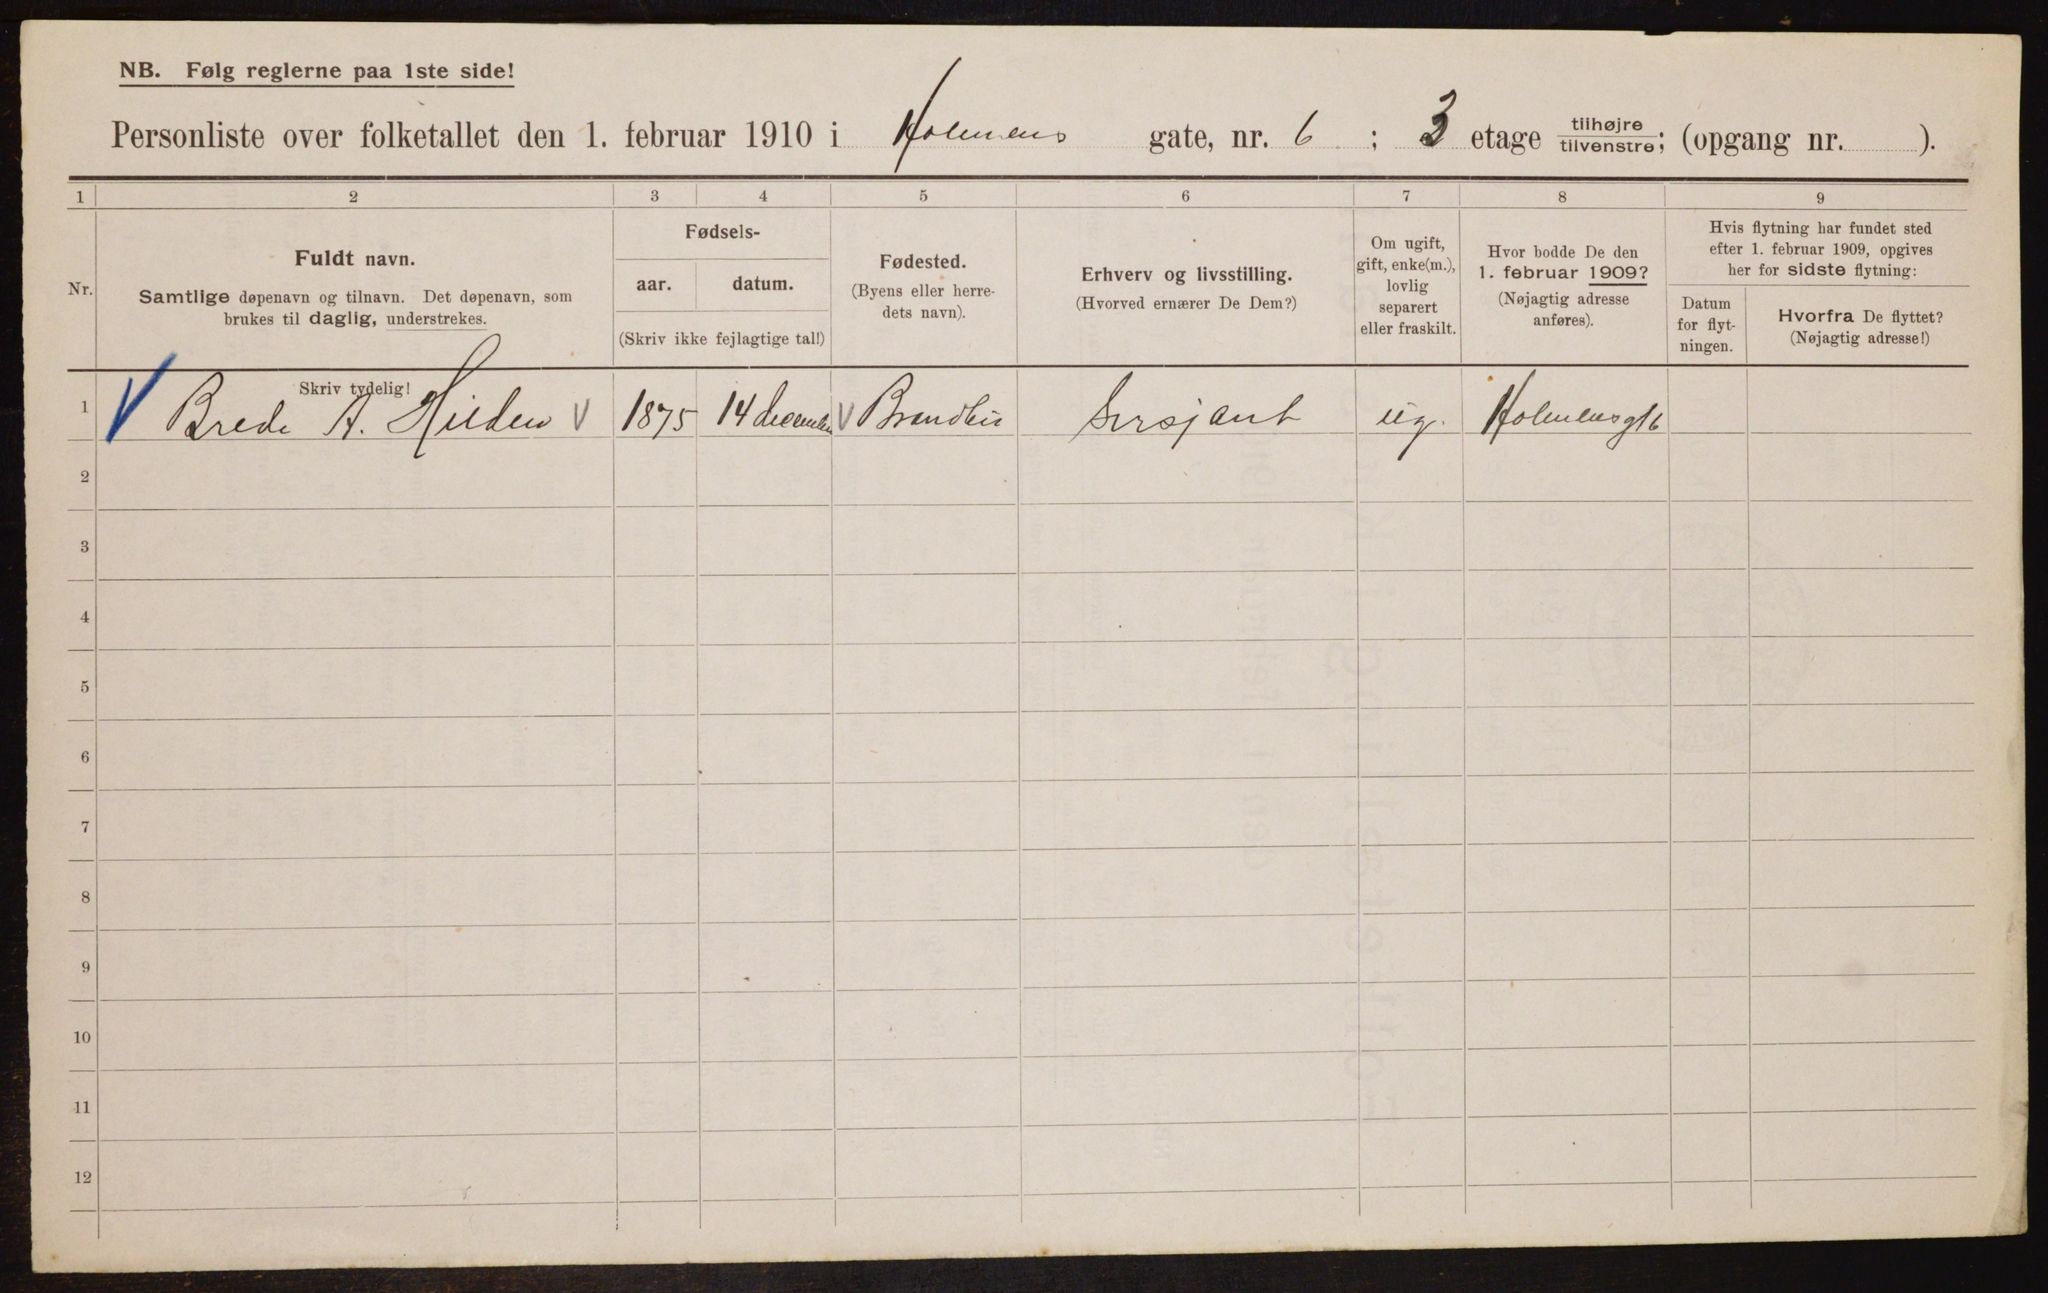 NB. Følg reglerne paa 1ste side!
Personliste over folketallet den 1. februar 1910 i Holmens gate, nr. 6 ; 3 etage tilhøjre/tilvenstre; (opgang nr. ).
1 2 3 4 5 6 7 8 9
Nr.
Fuldt navn.
Samtlige døpenavn og tilnavn. Det døpenavn, som
brukes til daglig, understrekes.
Fødsels-
aar. datum.
(Skriv ikke fejlagtige tal!)
Fødested.
(Byens eller herre-
dets navn).
Erhverv og livsstilling.
(Hvorved ernærer De Dem?)
Om ugift,
gift, enke(m.),
lovlig
separert
eller fraskilt.
Hvor bodde De den
1. februar 1909?
(Nøjagtig adresse
anføres).
Hvis flytning har fundet sted
efter 1. februar 1909, opgives
her for sidste flytning:
Datum
for flyt-
ningen.
Hvorfra De flyttet?
(Nøjagtig adresse!)
Skriv tydelig!
1 Brede A. Hilden 1875 14 december Brandbu Sersjant ug. Holmensgt 6
2
3
4
5
6
7
8
9
10
11
12